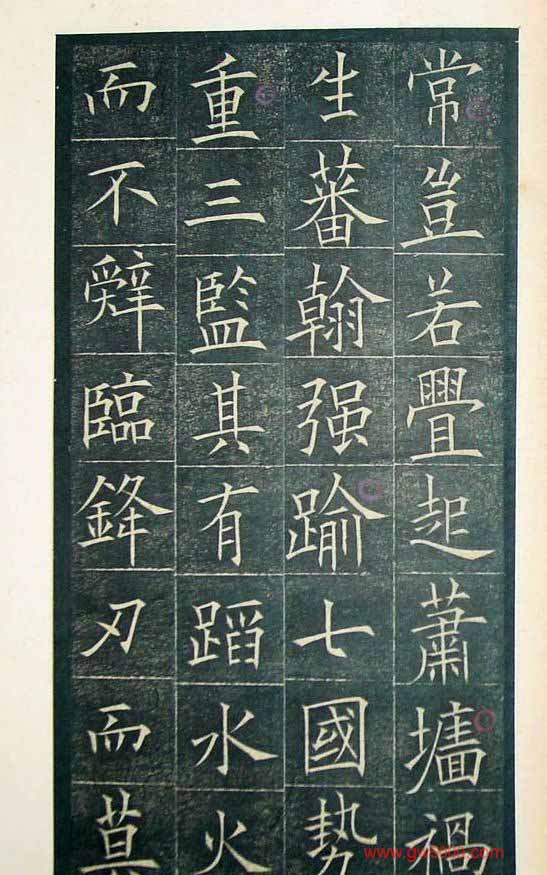 常豈若舋起蕭墻禍
生蕃翰强踰七國勢
重三監其有蹈水火
而不辤臨鋒刃而莫